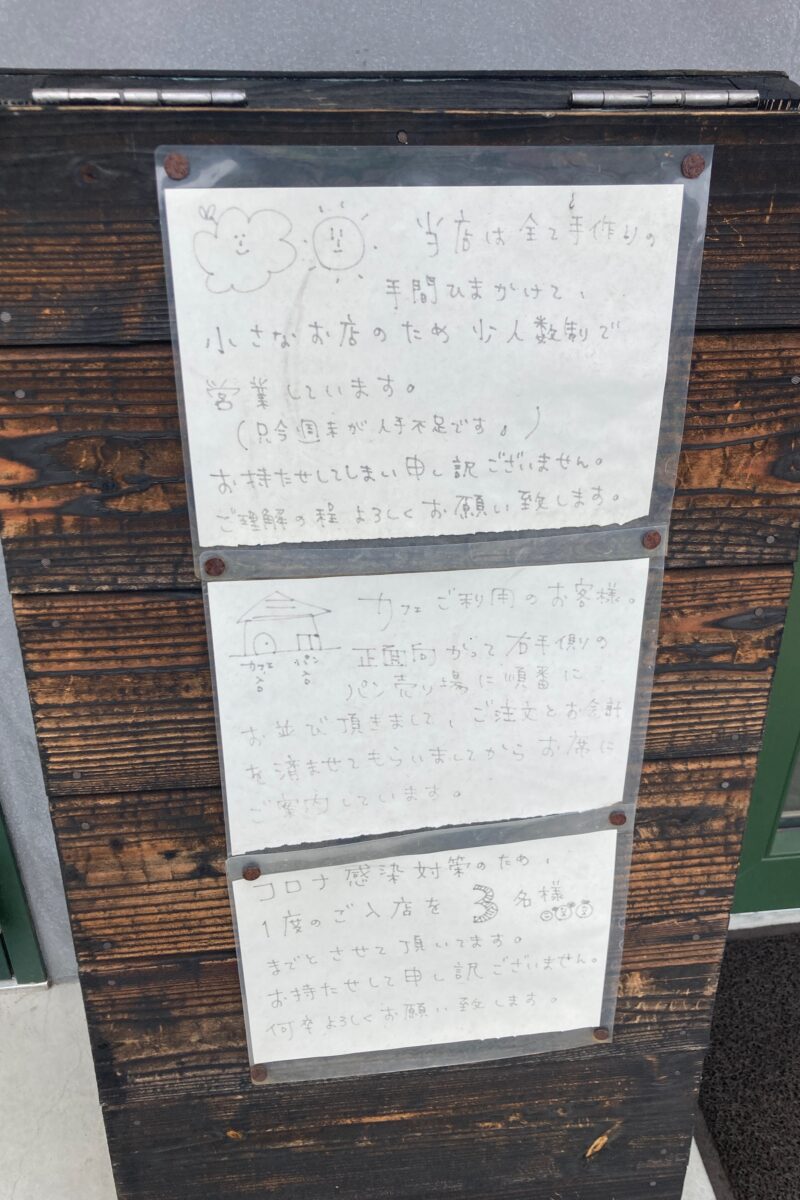 当店は全て手作りの
手間ひまかけて、
小さなお店のため少人数制で
営業しています。
(只今週末が人手不足です。)
お持たせしてしまい申し訳ございません。
ご理解の程よろしくお願い致します。
カフェご利用のお客様。
正面向かって右手側の
パン売り場に順番に
お並び頂きまして、ご注文とお会計
を済ませてもらいましてからお席に
ご案内しています。
カフェ入口
パン入口
コロナ感染対策のため、
1度のご入店を3名様
までとさせて頂いてます。
お持たせして申し訳ございません。
何卒よろしくお願い致します。